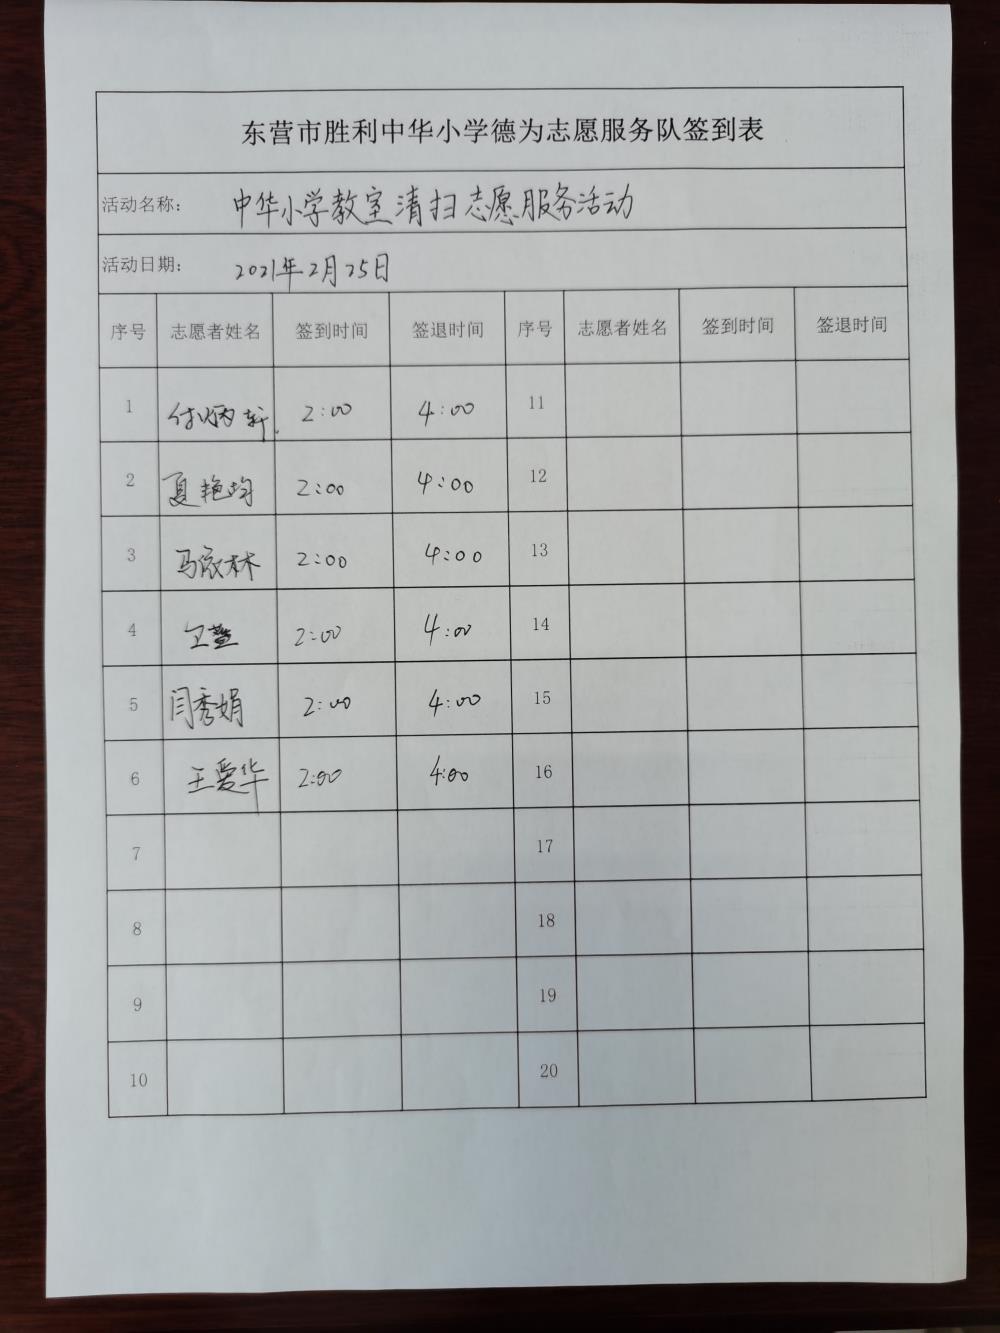 东营市胜利中华小学德为志愿服务队签到表
活动名称： 中华小学教室清扫志愿服务活动
活动日期： 2021年2月25日
序号 志愿者姓名 签到时间 签退时间 序号 志愿者姓名 签到时间 签退时间
1 付炳轩 2:00 4:00 11
2 夏艳均 2:00 4:00 12
3 马依林 2:00 4:00 13
4 2:00 4:00 14
5 闫秀娟 2:00 4:00 15
6 王爱华 2:00 4:00 16
7 17
8 18
9 19
10 20